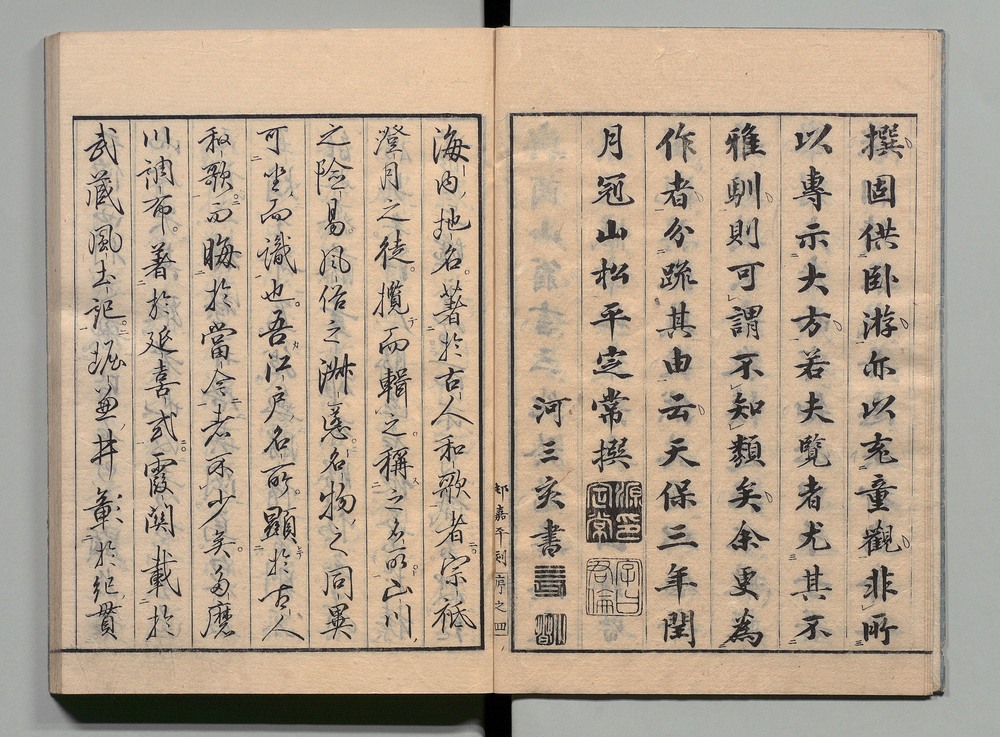 撰固供臥游亦以充童觀非所
以專示大方若夫覽者尤其不
雅馴則可謂不知類矣余更為
作者分疏其由云天保三年閏
月冠山松平定常撰
河三亥書
源印定常
字曰君倫
三亥
郁嘉平刻
序之四
海内地名著於古人和歌者宗祗
澄月之徒攬而輯之稱之名所山川
之險易風俗之淋慝名物之同異
可坐而識也吾江戶名所顯於古人
和歌而晦於當今者不少矣多麽
川調布著於延喜式霞関載於
武藏風土記堀兼井載於紀貫